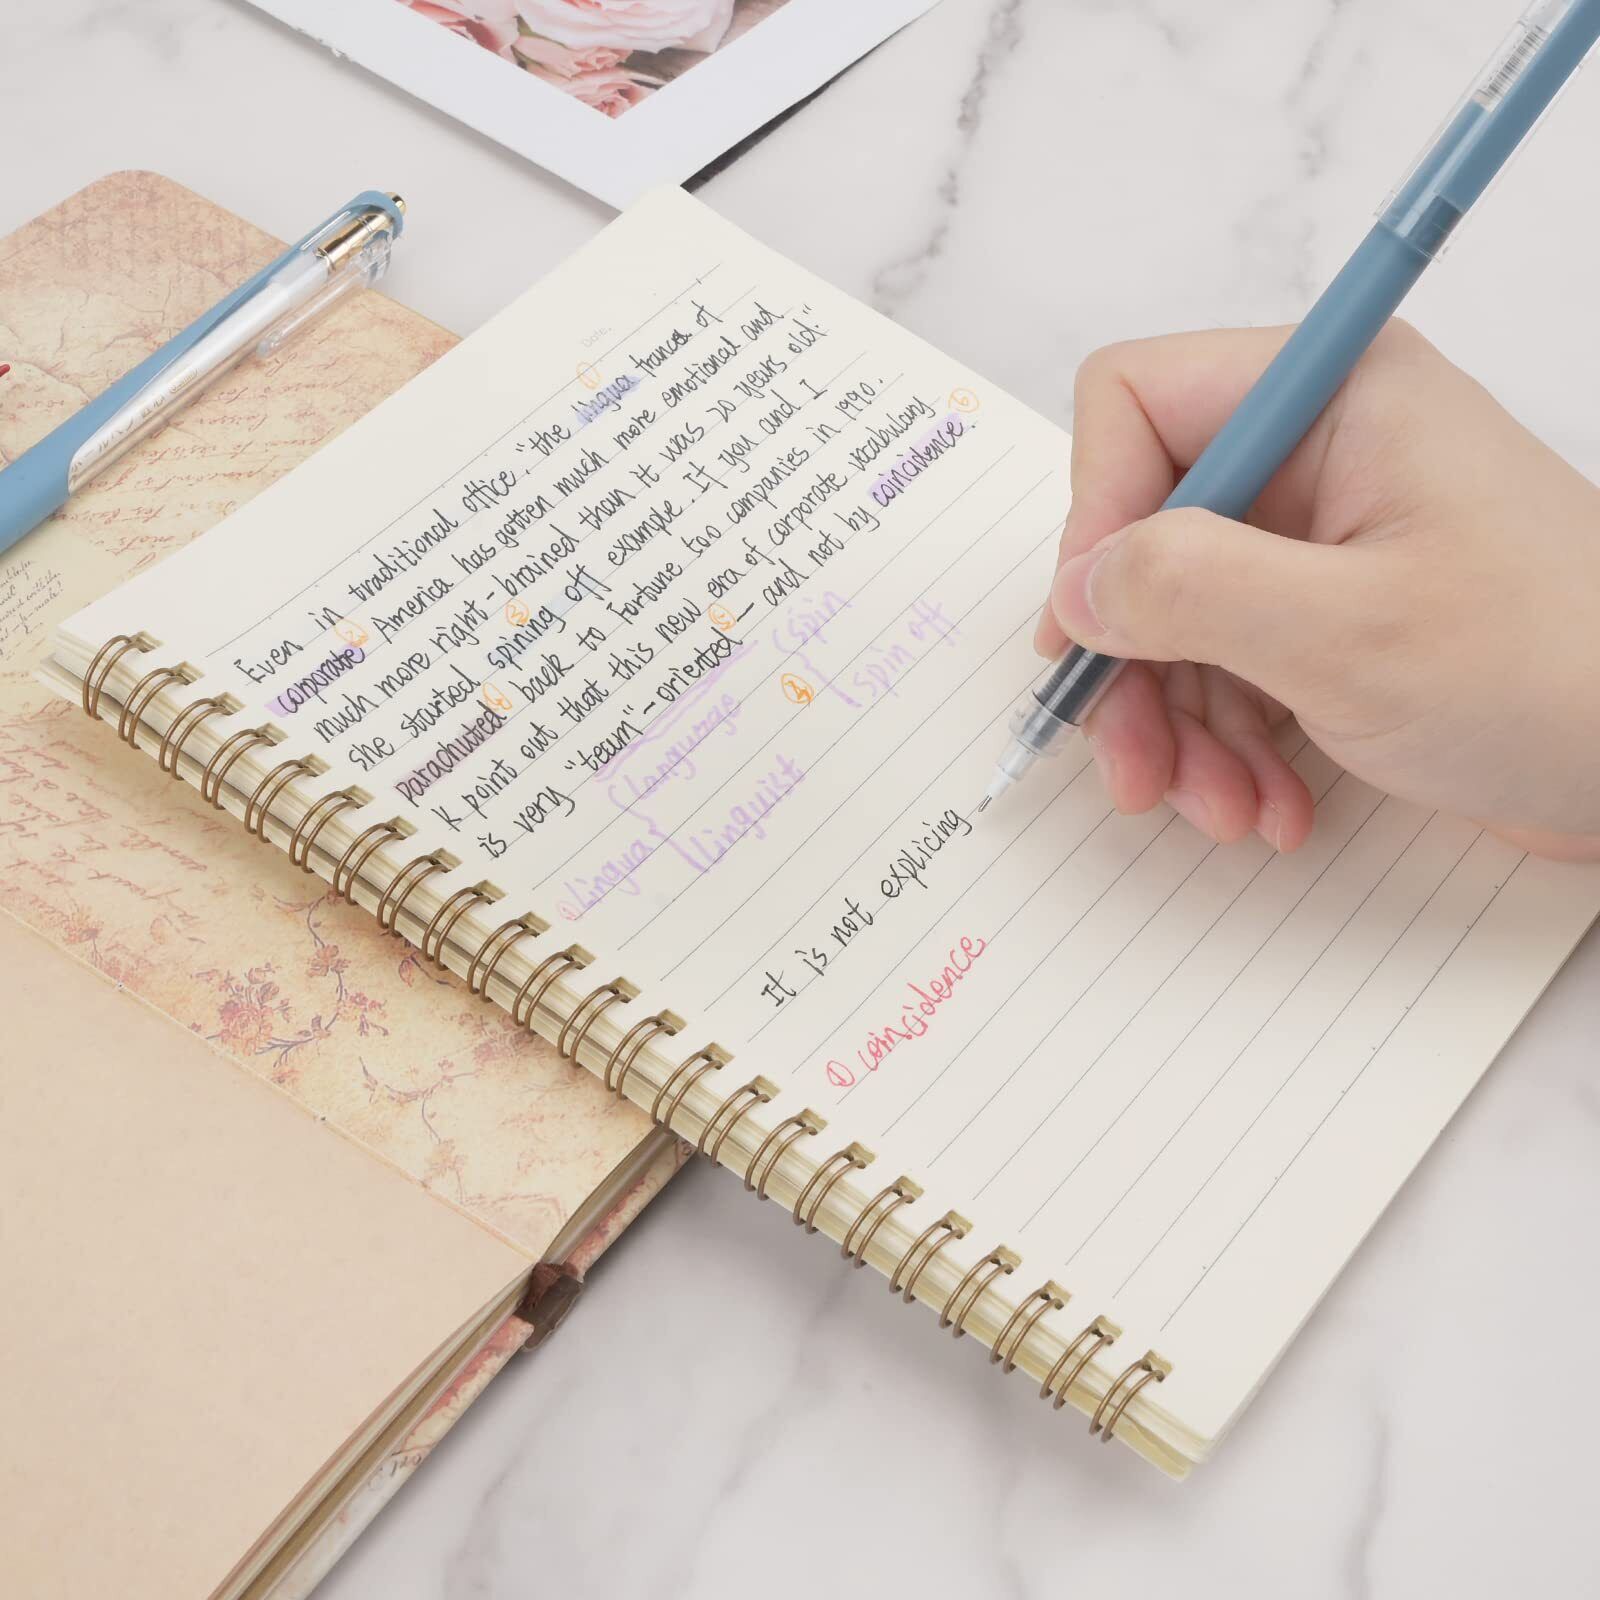 Date.
①
Even in traditional office, "the lingua franca of
②
corporate America has gotten much more emotional and
much more right-brained than it was 20 years old."
③
she started spining off example. If you and I
④
parachuted back to Fortune too companies in 1990.
K point out that this new era of corporate vocabulary
⑤ ⑥
is very "team"-oriented — and not by coincidence.
① Lingua { Language
Linguist
④ { spin
spin off
It is not explicing -
① coincidence